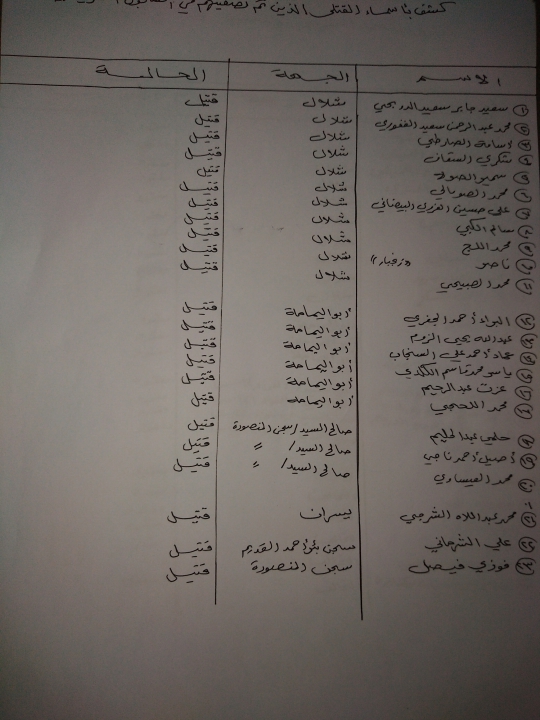 كشف بأسماء القتلى الذين تم تصفيتهم في
الاسم الجهة الحالة
① سعيد جابر سعيد شلال قتيل
② محمد عبدالرحمن سعيد شلال قتيل
③ أسامة شلال قتيل
④ شكري السقاف شلال قتيل
⑤ سمير شلال قتيل
⑥ محمد الصومالي شلال قتيل
⑦ علي حسين البيضاني شلال قتيل
⑧ سام شلال قتيل
⑨ محمد شلال قتيل
⑩ ناصر "زنجبار" شلال قتيل
⑪ محمد الصبيحي شلال قتيل
البراء أحمد الجفري أبو اليمامة قتيل
عبدالله يحيى أبو اليمامة قتيل
عماد أحمد علي أبو اليمامة قتيل
ياسر محمد قاسم أبو اليمامة قتيل
عزت عبدالرحيم أبو اليمامة قتيل
محمد اللحجي أبو اليمامة قتيل
حلمي عبدالحليم صالح السيد/سجن المنصورة قتيل
أصيل أحمد ناجي صالح السيد/ = قتيل
⑳ محمد العيساوي صالح السيد/ = قتيل
㉑ محمد عبداللاه الشرجبي يسران قتيل
㉒ علي سجن بئر أحمد القديم قتيل
㉓ فوزي فيصل سجن المنصورة قتيل